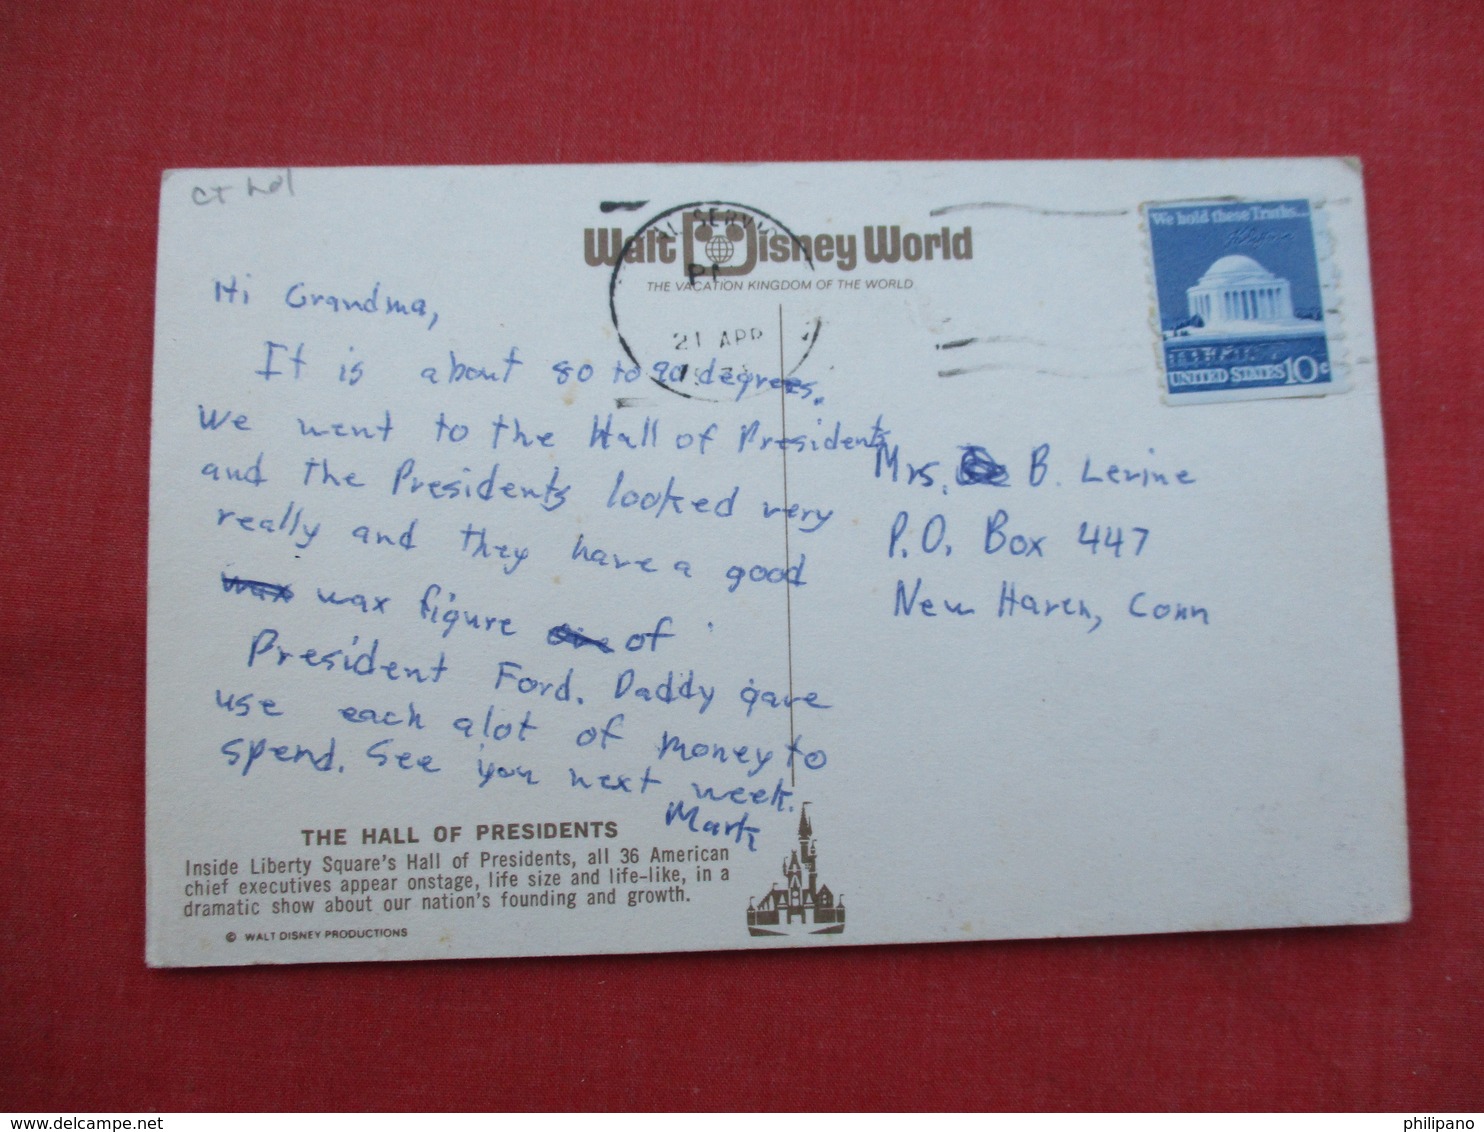 Walt Disney World
THE VACATION KINGDOM OF THE WORLD
21 APR
We hold these Truths...
UNITED STATES 10c
Hi Grandma,
It is about 80 to 90 degrees.
We went to the Hall of Presidents
and the Presidents looked very
really and they have a good
wax wax figure one of
President Ford. Daddy gave
use each alot of money to
spend. See you next week.
Mark
Mrs. B. Levine
P.O. Box 447
New Haven, Conn
THE HALL OF PRESIDENTS
Inside Liberty Square's Hall of Presidents, all 36 American
chief executives appear onstage, life size and life-like, in a
dramatic show about our nation's founding and growth.
© WALT DISNEY PRODUCTIONS
philipano